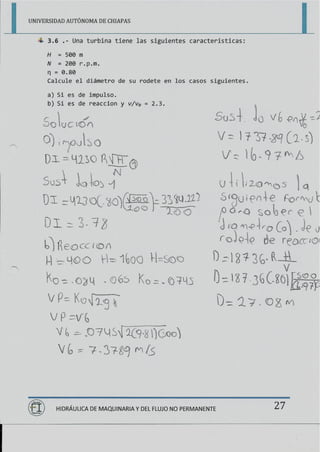 UNIVERSIDAD AUTÓNOMA DE CHIAPAS
3.6 .- Una turbina tiene las siguientes características:
H = 500 m
N = 200 r.p.m.
η = 0.80
Calcule el diámetro de su rodete en los casos siguientes.
a) Si es de impulso.
b) Si es de reaccion y v/v₀ = 2.3.
Solución
a) impulso
DI = 4230 R√H
N
Sust datos
DI = 4230(.80)(√500
200) = 3384.227
200
DI = 3.78
b) Reaccion
H = 400 H = 1600 H=500
Ko = .084 .065 Ko = .0745
VP = Ko√2g h
VP = V6
V6 = .0745√2(9.81)(500)
V6 = 7.3789 m/s
Sust do V6 en
V = 1737.89 (2.5)
V = 16.97 m/s
utilizamos la
siguiente formul
para saber el
diametro (D). de
rodete de reaccio
D = 18736.R H
V
D = 187.36(.80)
D = 27.08 m
HIDRÁULICA DE MAQUINARIA Y DEL FLUJO NO PERMANENTE
27